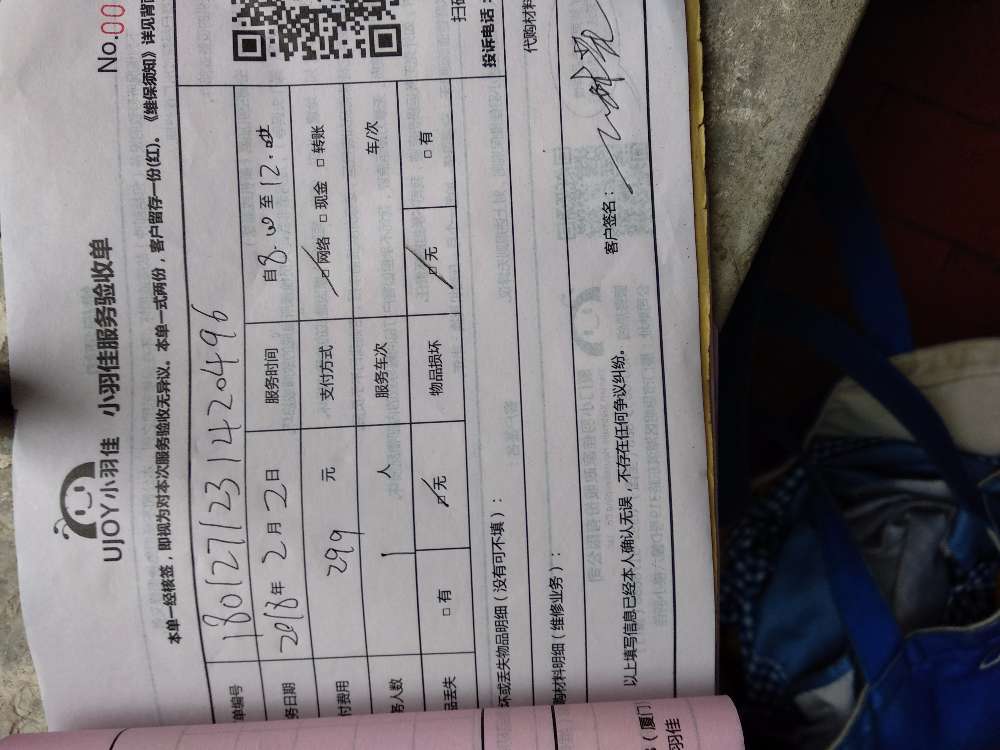 No.00
UJOY小羽佳 小羽佳服务验收单
本单一经核签，即视为对本次服务验收无异议。本单一式两份，客户留存一份(红)。《维保须知》详见背面
单编号 180127123142049 6
务日期 2018年 2月 2日 服务时间 自 8.00 至 12.00
付费用 299 元 支付方式 □网络 □现金 □转账
务人数 1 人 服务车次 车/次
品丢失 □有 □无 物品损坏 □无 □有
坏或丢失物品明细（没有可不填）： 投诉电话：
扫码
购材料明细（维修业务）： 代购材料
以上填写信息已经本人确认无误，不存在任何争议纠纷。 客户签名：
（厦门
羽佳